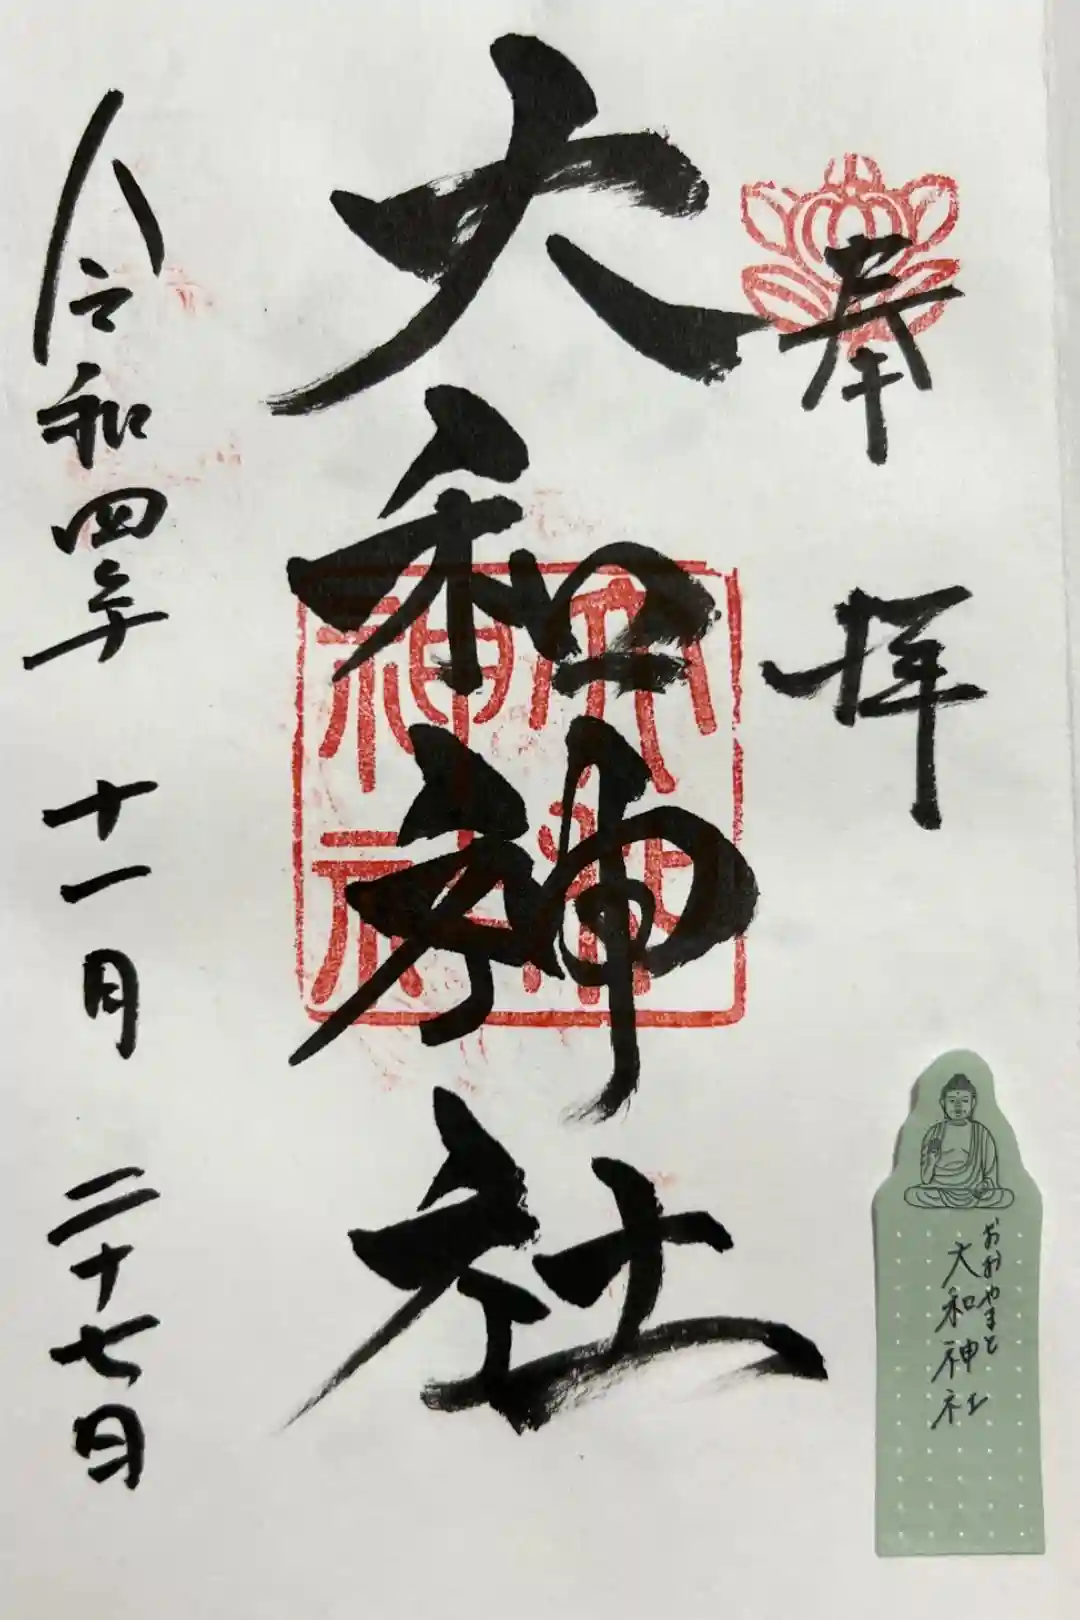 奉拝
大和神社
大和神社
令和四年十一月二十七日
おおやまと
大和神社